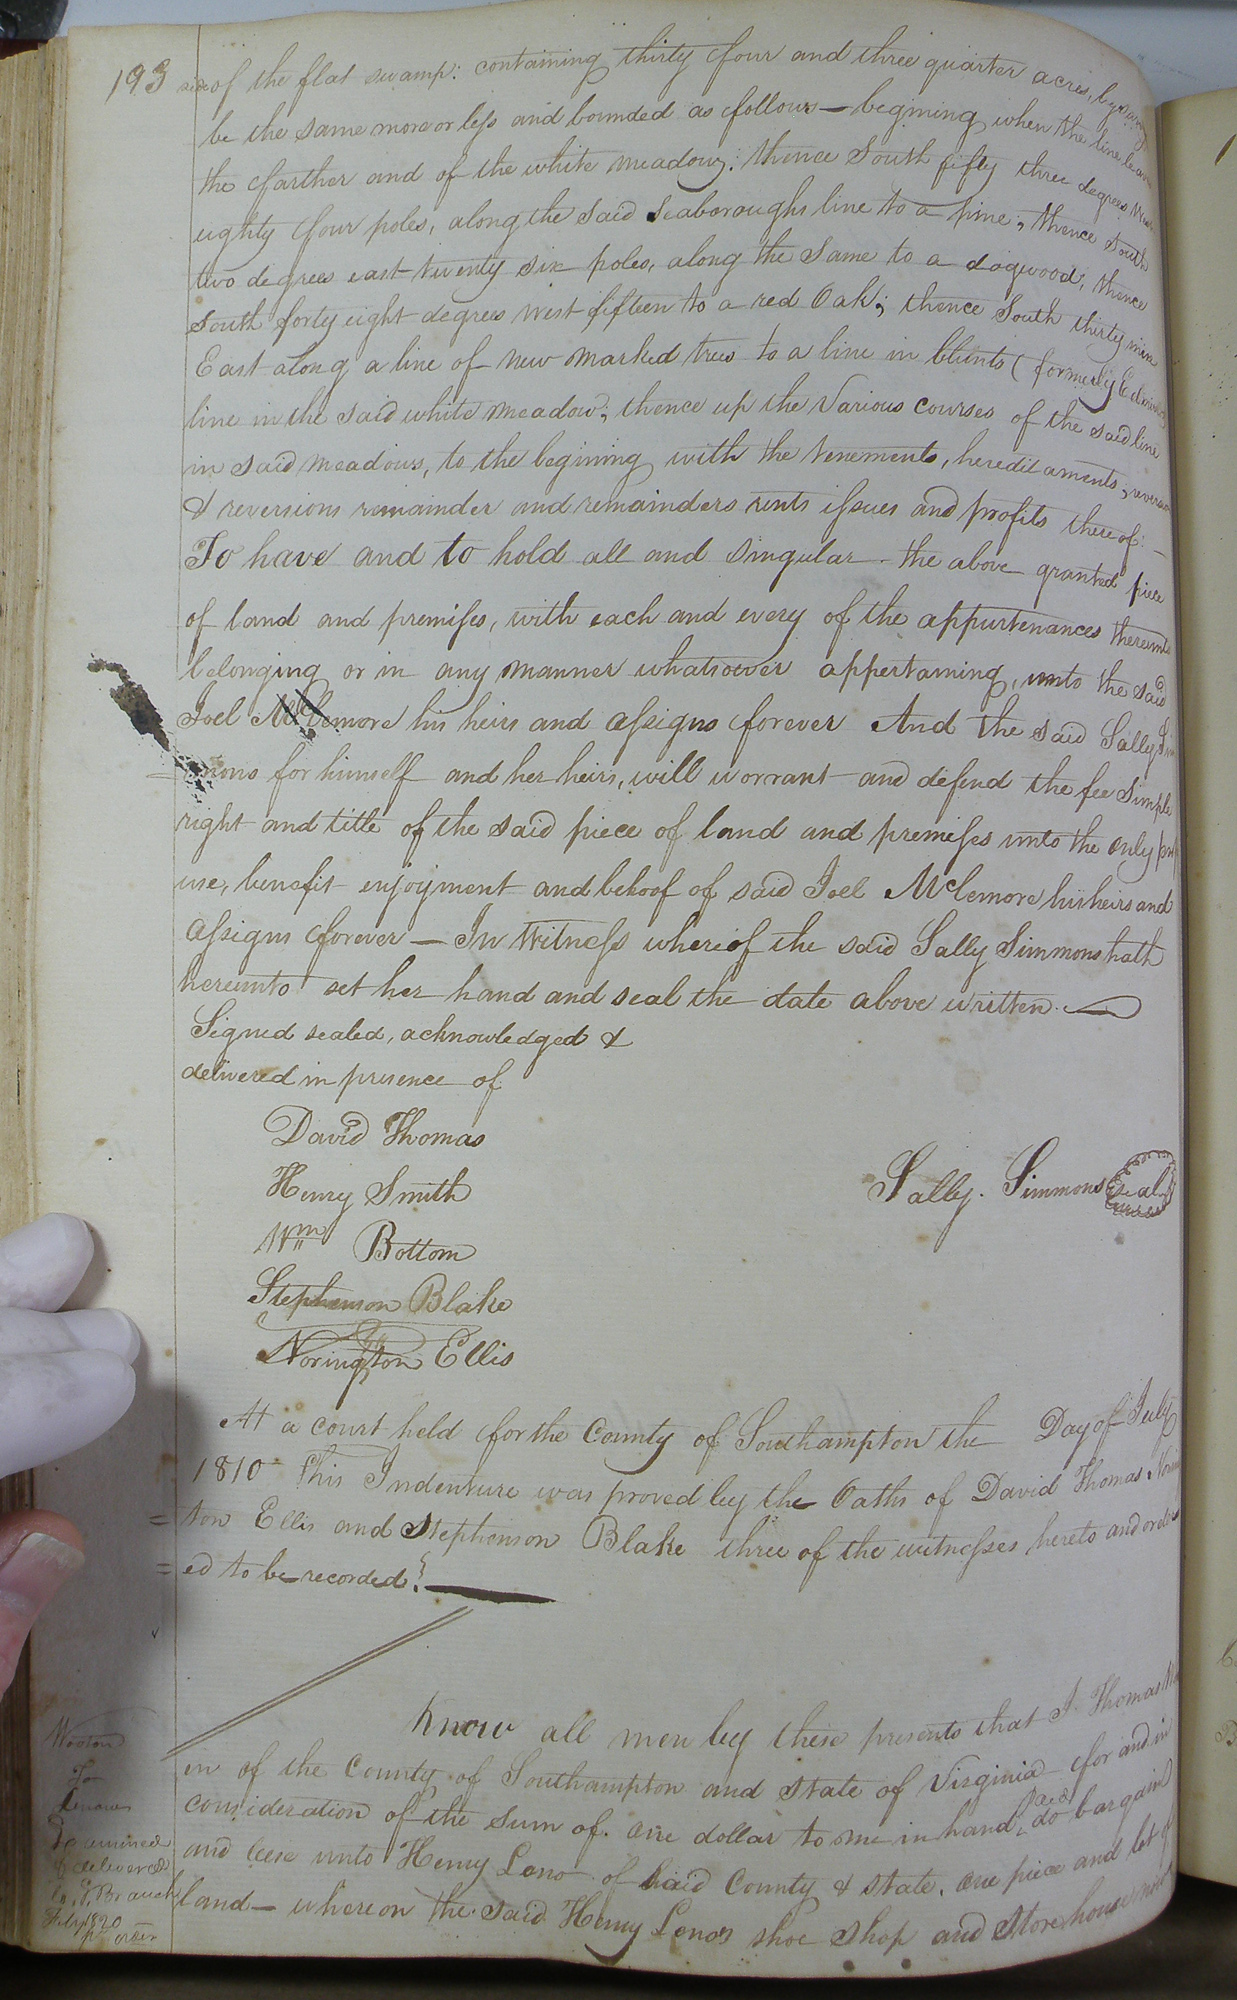 193
side of the flat swamp: containing thirty four and three quarter acres, by
be the same more or less and bounded as follows – begining when the line leaves
the farther end of the white meadow: thence South fifty three degrees West
eighty four poles, along the said Seaboroughs line to a pine; thence South
two degrees east twenty six poles, along the Same to a dogwood, thence
South forty eight degrees west fifteen to a red Oak; thence South thirty nine
East along a line of new marked trees to a line in blunts (formerly
line in the said white meadow; thence up the Various courses of the said line
in said meadows, to the begining with the tenements, hereditaments,
& reversions remainder and remainders rents issues and profits thereof –
To have and to hold all and singular the above granted piece
of land and premises, with each and every of the appurtenances thereunto
belonging or in any manner whatsoever appertaining, unto the said
Joel McLemore his heirs and assigns forever And the said Sally Sim
=mons for himself and her heirs, will warrant and defend the fee Simple
right and title of the said piece of land and premises unto the only
use, benefit enjoyment and behoof of said Joel McLemore his heirs and
assigns forever – In Witness whereof the said Sally Simmons hath
hereunto set her hand and seal the date above written.
Signed sealed, acknowledged &
delivered in presence of
David Thomas
Henry Smith
Sally. Simmons Seal
Wm Bottom
Stephenson Blake
Norington Ellis
At a court held for the County of Southampton the Day of July
1810 This Indenture was proved by the Oaths of David Thomas Noring
=ton Ellis and Stephenson Blake three of the witnesses hereto and order
=ed to be recorded.
Know all men by these presents that I Thomas
en of the County of Southampton and State of Virginia for and in
consideration of the sum of one dollar to me in hand paid do bargain
and lease unto Henry Leno of said County & state. one piece and lot of
land – whereon the said Henry Leno's shoe shop and Store house
To
Examined
& delivered
to J. Branch
July 1820
pr order